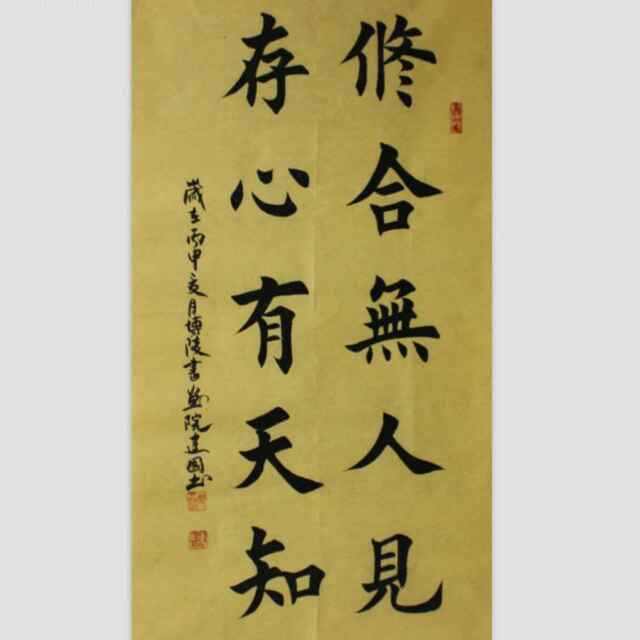 修合無人見
存心有天知
歲在丙申亥月博陵書畫院建國书